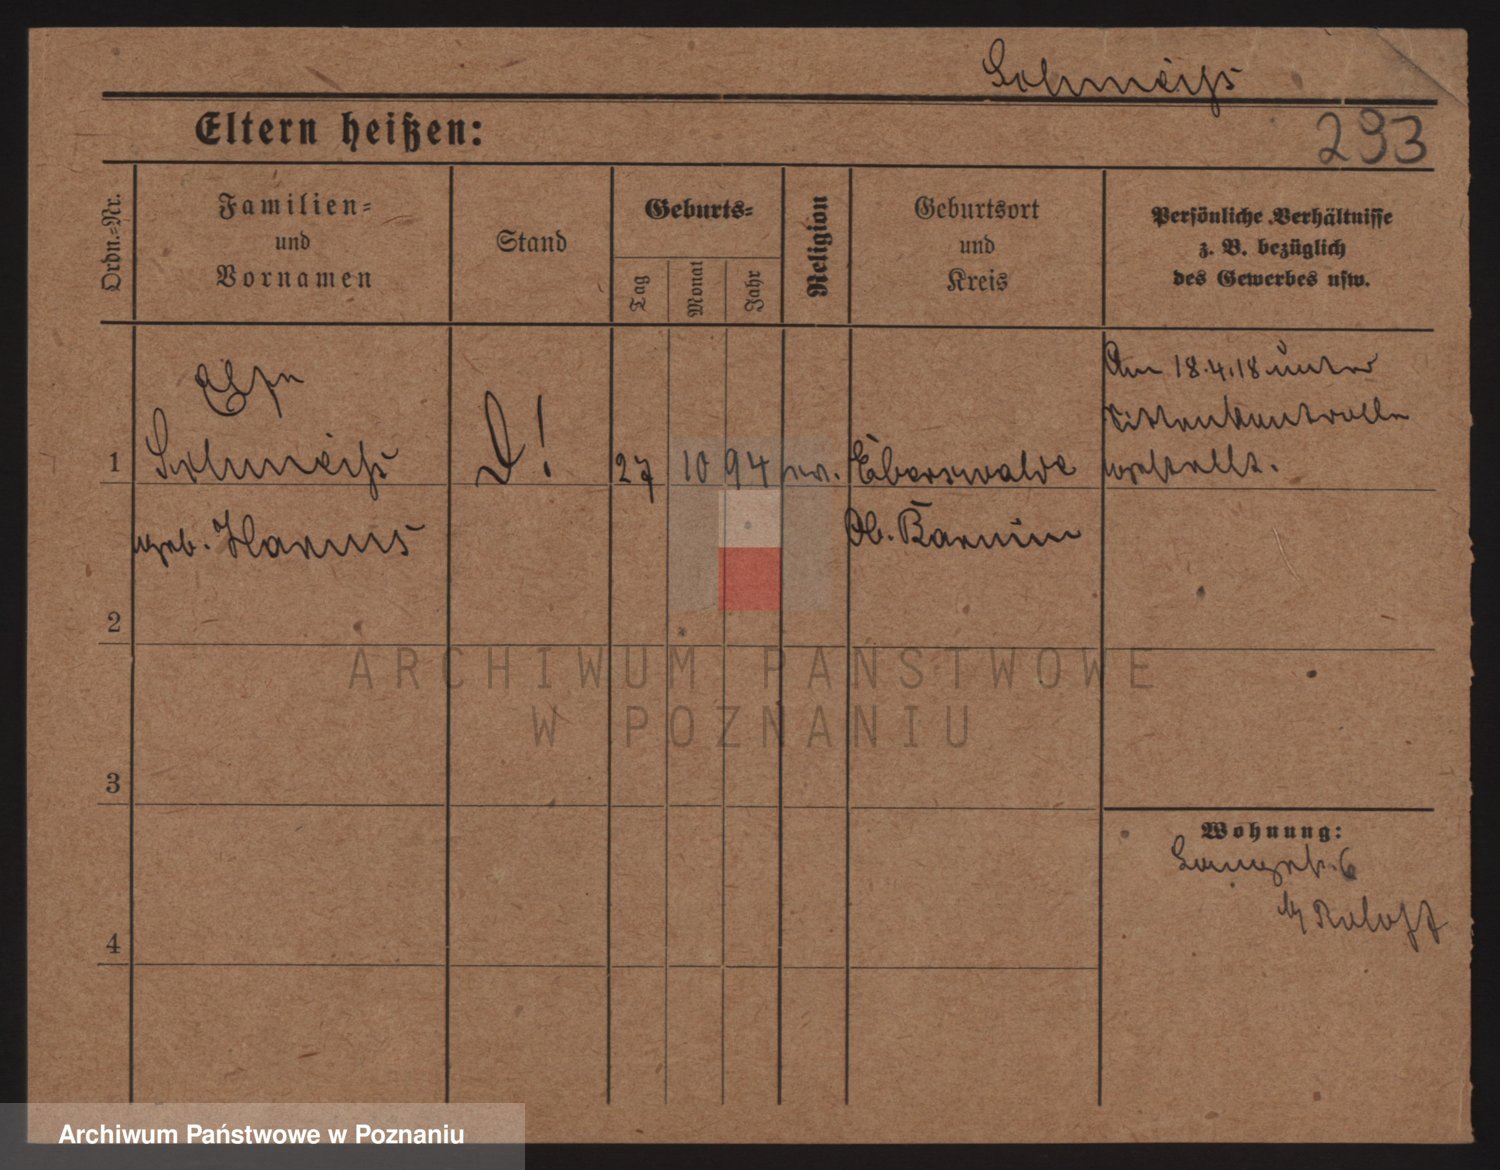 Schmeiss
Eltern heißen:
293
Ordn.-Nr.
Familien-
und
Vornamen
Stand
Geburts-
Tag
Monat
Jahr
Religion
Geburtsort
und
Kreis
Persönliche Verhältnisse
z. B. bezüglich
des Gewerbes usw.
Am 18.4.18 unter
Sittenkontrolle
gestellt.
1
Schmeiss
D!
27 10 94 ev.
Eberswalde
geb. Harms
Ob. Barnim
2
ARCHIWUM PAŃSTWOWE
W POZNANIU
3
Wohnung:
6
4
Archiwum Państwowe w Poznaniu